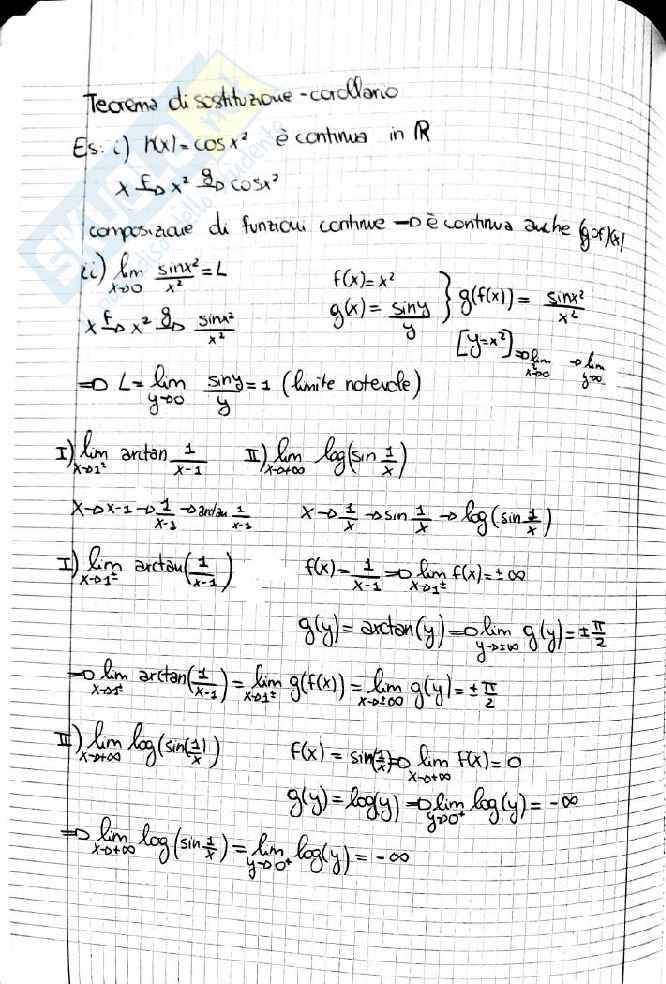 Teorema di sostituzione - corollario
Es: i) h(x) = cos x² è continua in ℝ
x →f x² →g cos x²
composizione di funzioni continue → è continua anche (g∘f)(x)
ii) lim x→0 sinx²/x² = L f(x) = x² g(x) = siny/y } g(f(x)) = sinx²/x²
x →f x² →g sinx²/x² [y=x²] ⇒ lim x→0 → lim y→0
⇒ L = lim y→0 siny/y = 1 (limite notevole)
I) lim x→1± arctan 1/(x-1) II) lim x→+∞ log(sin 1/x)
x → x-1 → 1/(x-1) → arctan 1/(x-1) x → 1/x → sin 1/x → log(sin 1/x)
I) lim x→1± arctan(1/(x-1)) f(x) = 1/(x-1) ⇒ lim x→1± f(x) = ±∞
g(y) = arctan(y) ⇒ lim y→±∞ g(y) = ± π/2
⇒ lim x→1± arctan(1/(x-1)) = lim x→1± g(f(x)) = lim x→±∞ g(y) = ± π/2
II) lim x→+∞ log(sin(1/x)) f(x) = sin(1/x) ⇒ lim x→+∞ f(x) = 0
g(y) = log(y) ⇒ lim y→0⁺ log(y) = -∞
⇒ lim x→+∞ log(sin 1/x) = lim y→0⁺ log(y) = -∞